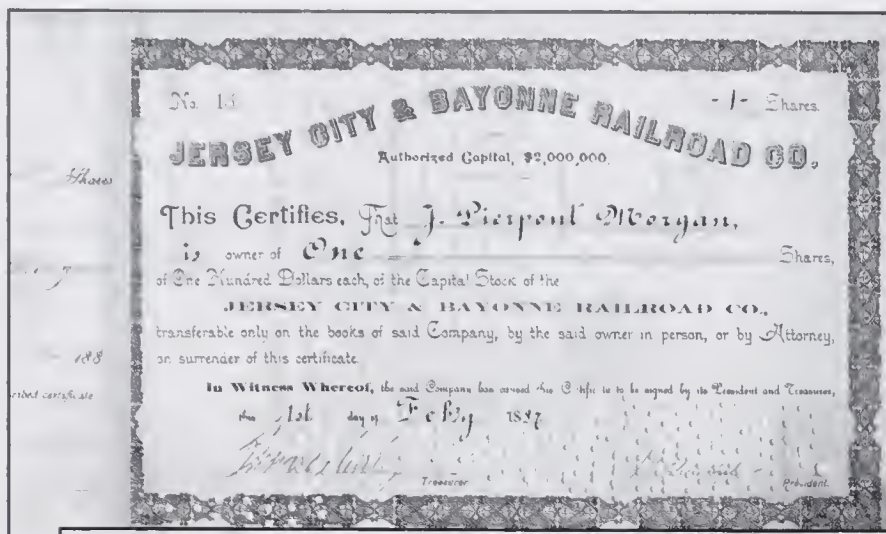 No. 13
-1- Shares.
JERSEY CITY & BAYONNE RAILROAD CO.,
Authorized Capital, $2,000,000.
Shares
This Certifies, That J. Pierpont Morgan,
is owner of One Shares,
of One Hundred Dollars each, of the Capital Stock of the
JERSEY CITY & BAYONNE RAILROAD CO.,
transferable only on the books of said Company, by the said owner in person, or by Attorney,
on surrender of this certificate.
188
certificate
In Witness Whereof, the said Company has caused this Certificate to be signed by its President and Treasurer,
this 1st day of Feby 1887
Treasurer
President.